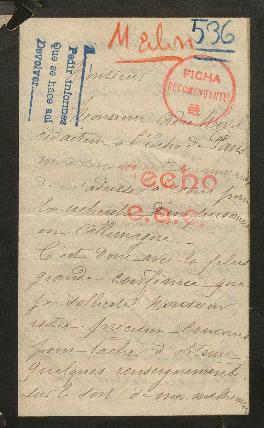 Melun
536
Pedir informes
que se hace aci
Devolver
FICHA
RECOMENDANTE
Monsieur
Monsieur
rédacteur à l'Echo de Paris
echo
e.a.c.
la recherche
en Allemagne.
C'est donc avec la plus
grande confiance que
je sollicite Monsieur
votre précieux concours
pour tâcher d'obtenir
quelques renseignements
sur le sort de mon malheureux